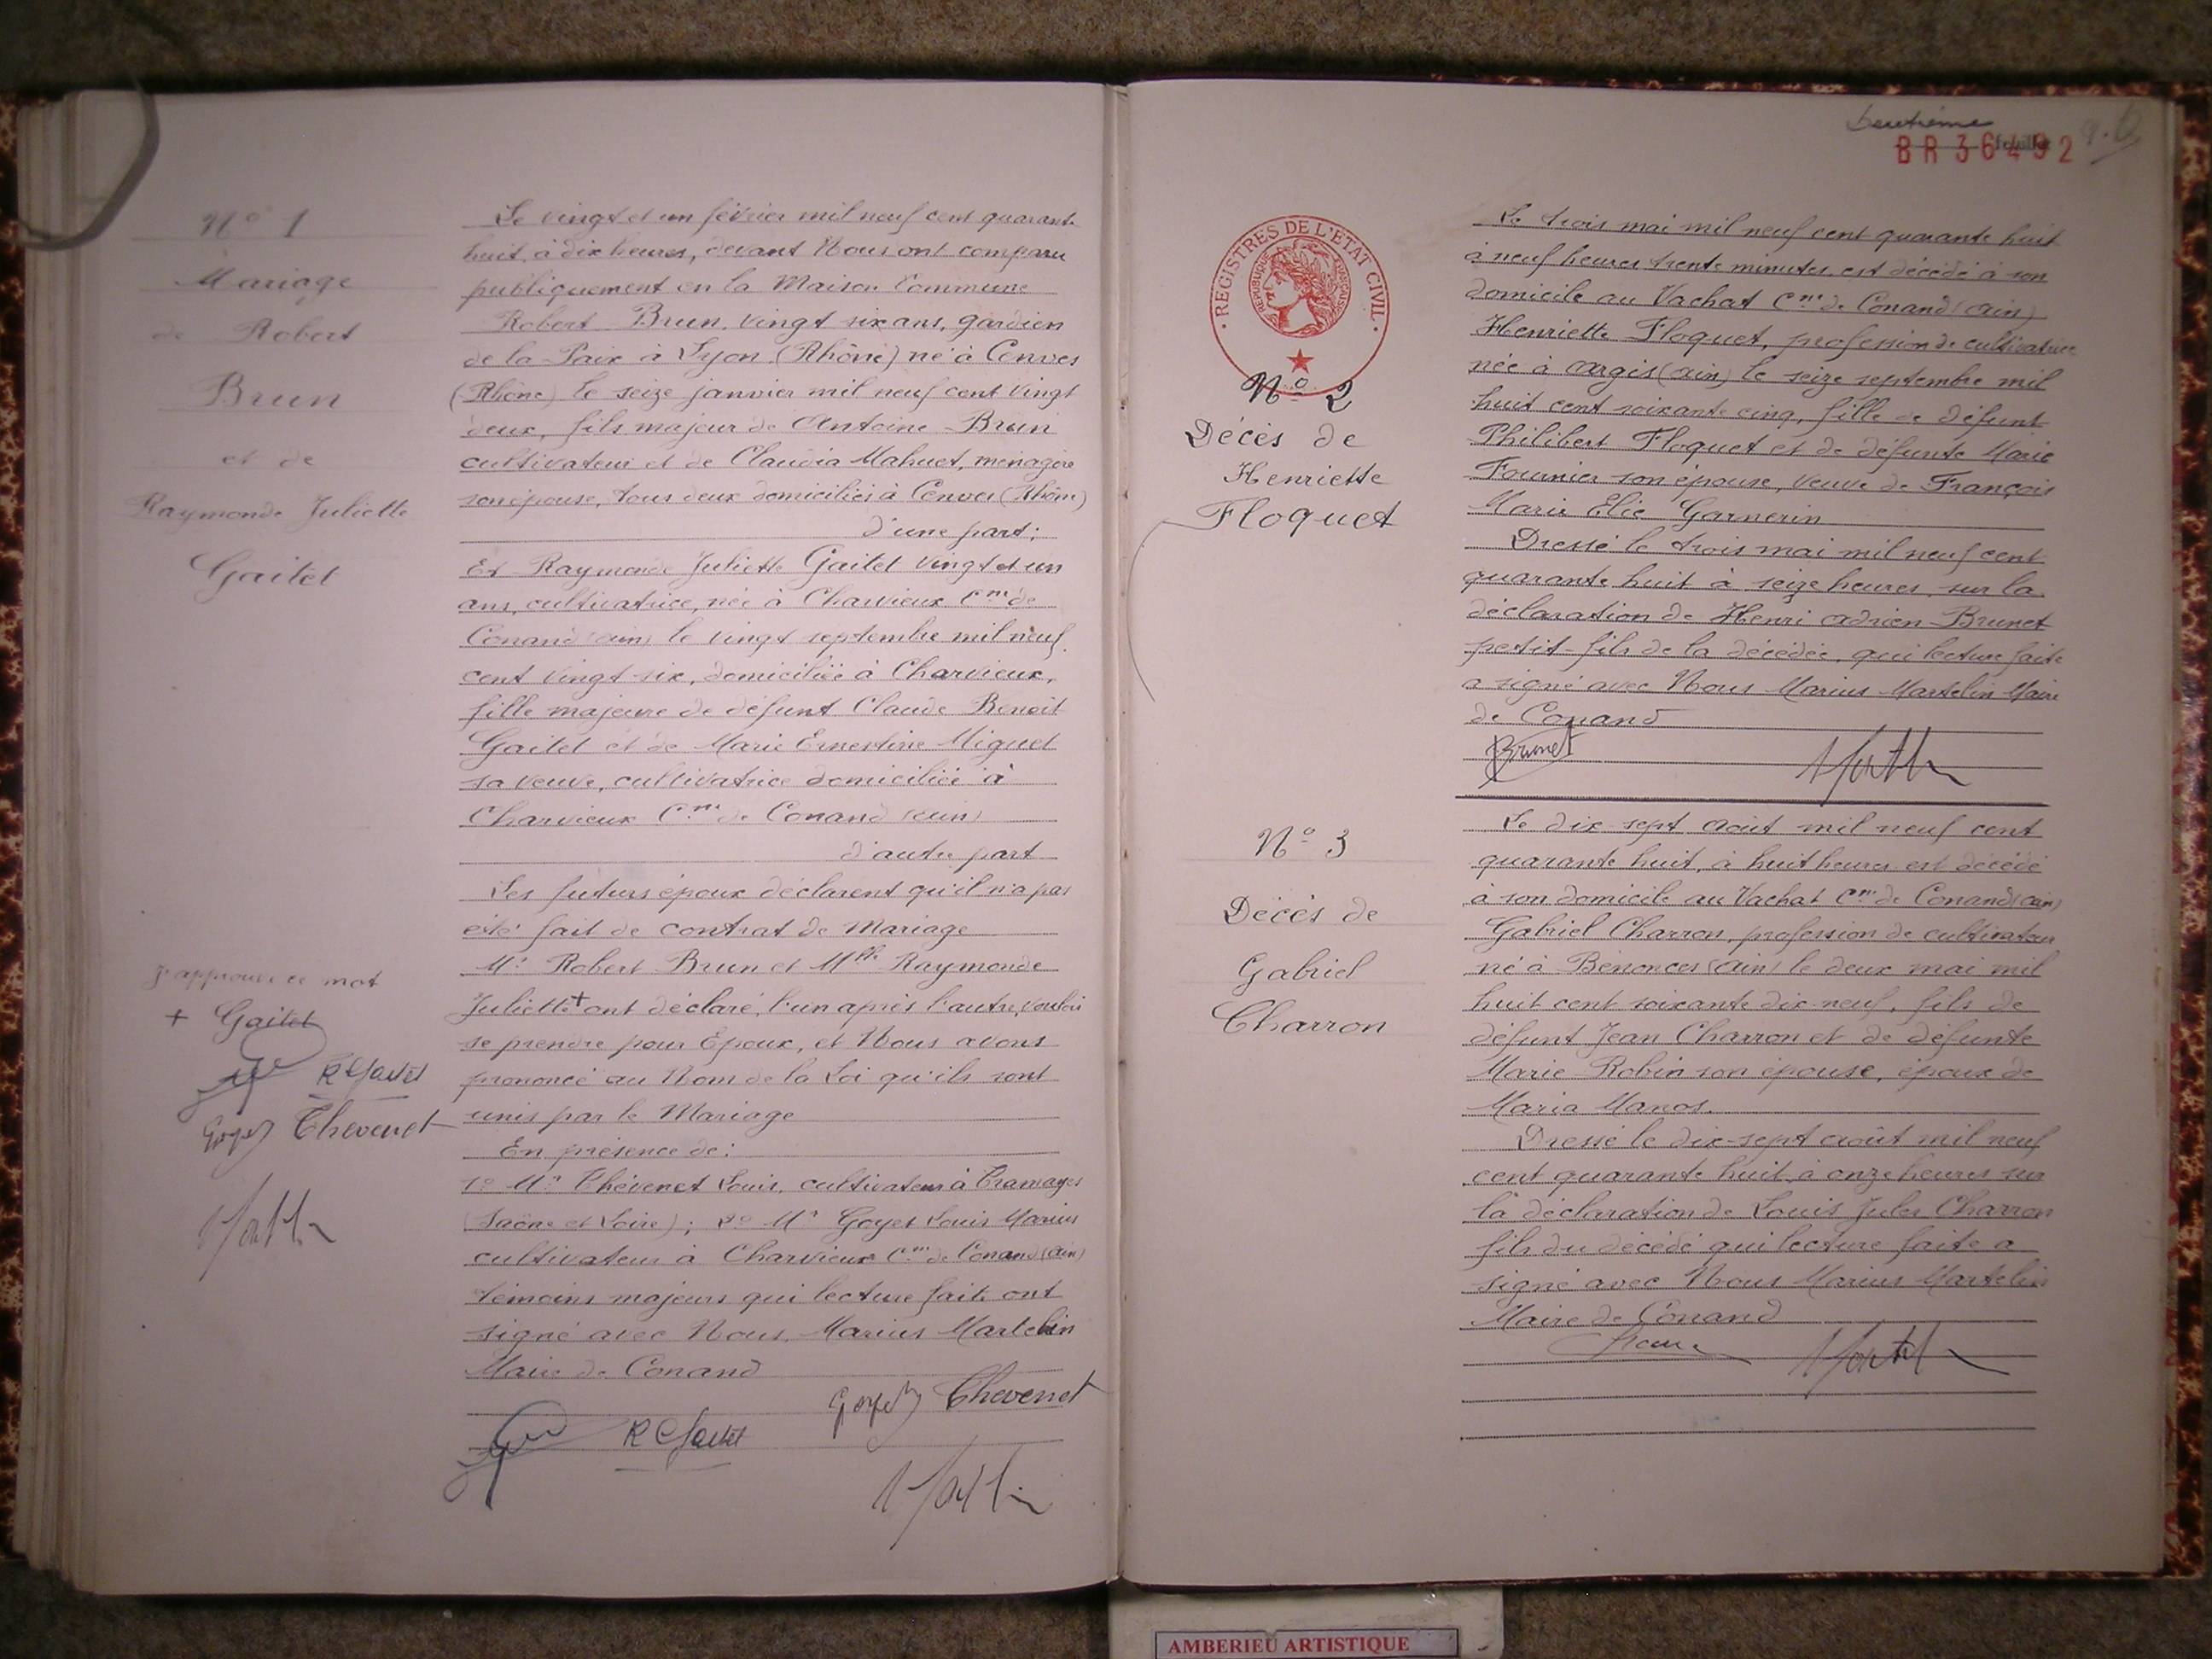 N° 1
Mariage
de Robert
Brun
et de
Raymonde Juliette
Gaitet
Le vingt et un février mil neuf cent quarante
huit, à dix heures, devant Nous ont comparu
publiquement en la Maison Commune
Robert Brun, vingt six ans, gardien
de la Paix à Lyon (Rhône) né à Cenves
(Rhône) le seize janvier mil neuf cent vingt
deux, fils majeur de Antoine Brun
cultivateur et de Claudia Mahuet, ménagère
son épouse, tous deux domiciliés à Cenves (Rhône)
d'une part;
Et Raymonde Juliette Gaitet vingt et un
ans, cultivatrice, née à Charvieux Cne de
Conand (Ain) le vingt septembre mil neuf
cent vingt six, domiciliée à Charvieux,
fille majeure de défunt Claude Benoit
Gaitet et de Marie Ernestine Miguet
sa veuve, cultivatrice domiciliée à
Charvieux Cne de Conand (Ain)
d'autre part
Les futurs époux déclarent qu'il n'a pas
été fait de contrat de Mariage
Mr Robert Brun et Mlle Raymonde
Juliette + ont déclaré, l'un après l'autre, vouloir
se prendre pour Epoux, et Nous avons
prononcé au Nom de la Loi qu'ils sont
unis par le Mariage
En présence de:
1° Mr Thévenet Louis, cultivateur à Tramayes
(Saône et Loire); 2° Mr Goyet Louis Marius
cultivateur à Charvieux Cne de Conand (Ain)
témoins majeurs qui lecture faite ont
signé avec Nous, Marius Martelin
Maire de Conand
Goyet Thevenet
R Gaitet
J'approuve ce mot
+ Gaitet
R Gaitet
Goyet Thevenet
deuxième feuillet
BR 36492
REGISTRES DE L'ETAT CIVIL
REPUBLIQUE FRANÇAISE
N° 2
Décès de
Henriette
Floquet
Le trois mai mil neuf cent quarante huit
à neuf heures trente minutes est décédé à son
domicile au Vachat Cne de Conand (Ain)
Henriette Floquet, profession de cultivatrice
née à Argis (Ain) le seize septembre mil
huit cent soixante cinq, fille de défunt
Philibert Floquet et de défunte Marie
Fournier son épouse, veuve de François
Marie Elie Garnerin
Dressé le trois mai mil neuf cent
quarante huit à seize heures, sur la
déclaration de Henri Adrien Brunet
petit-fils de la décédée, qui lecture faite
a signé avec Nous Marius Martelin Maire
de Conand
Brunet
N° 3
Décès de
Gabriel
Charron
Le dix sept août mil neuf cent
quarante huit, à huit heures est décédé
à son domicile au Vachat Cne de Conand (Ain)
Gabriel Charron, profession de cultivateur
né à Bénonces (Ain) le deux mai mil
huit cent soixante dix-neuf, fils de
défunt Jean Charron et de défunte
Marie Robin son épouse, époux de
Maria Manos.
Dressé le dix-sept août mil neuf
cent quarante huit à onze heures sur
la déclaration de Louis Jules Charron
fils du décédé qui lecture faite a
signé avec Nous Marius Martelin
Maire de Conand
AMBERIEU ARTISTIQUE